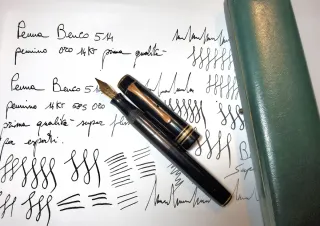 Penna Benco 514
pennino oro 14 Kt prima qualità
Penna Benco 514
pennino 14 Kt 585 oro
prima qualità - super
per esperti.